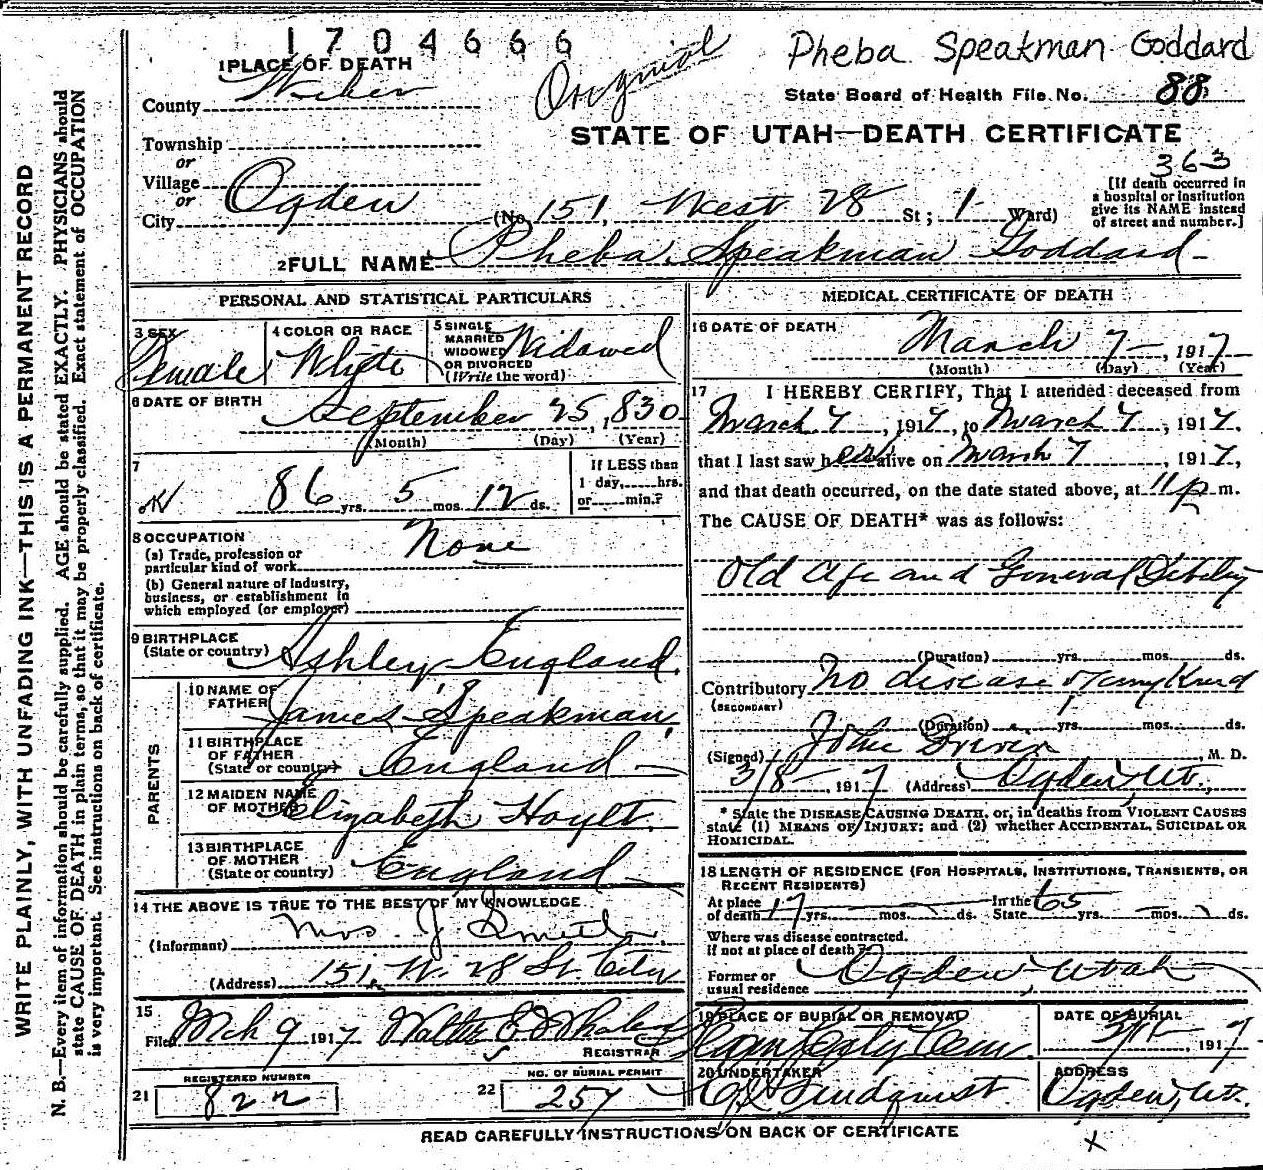 1704666
Original
Pheba Speakman Goddard
State Board of Health File No. 88
STATE OF UTAH—DEATH CERTIFICATE
363
1 PLACE OF DEATH
County Weber
Township
or
Village
or
City Ogden (No. 151, West 28 St; 1 Ward)
[If death occurred in
a hospital or institution
give its NAME instead
of street and number.]
2 FULL NAME Pheba Speakman Goddard
PERSONAL AND STATISTICAL PARTICULARS
3 SEX
Female
4 COLOR OR RACE
White
5 SINGLE
MARRIED
WIDOWED
OR DIVORCED
(Write the word)
Widowed
6 DATE OF BIRTH
September 25, 1830
(Month) (Day) (Year)
7
86 yrs. 5 mos. 12 ds.
If LESS than
1 day, hrs.
or min.?
8 OCCUPATION
None
(a) Trade, profession or
particular kind of work
(b) General nature of industry,
business, or establishment in
which employed (or employer)
9 BIRTHPLACE
(State or country) Ashley, England.
PARENTS
10 NAME OF
FATHER James Speakman,
11 BIRTHPLACE
OF FATHER
(State or country) England
12 MAIDEN NAME
OF MOTHER Elizabeth Hoylt.
13 BIRTHPLACE
OF MOTHER
(State or country) England
14 THE ABOVE IS TRUE TO THE BEST OF MY KNOWLEDGE
(Informant) Mrs. J.
(Address) 151, W. 28 St. City
15
Filed Mch 9 1917 Walter E
REGISTRAR
REGISTERED NUMBER
21 822
NO. OF BURIAL PERMIT
22 257
MEDICAL CERTIFICATE OF DEATH
16 DATE OF DEATH
March 7, 1917
(Month) (Day) (Year)
17 I HEREBY CERTIFY, That I attended deceased from
March 7, 1917, to March 7, 1917,
that I last saw her alive on March 7, 1917,
and that death occurred, on the date stated above, at 11 p m.
The CAUSE OF DEATH* was as follows:
Old Age and General Debility
(Duration) yrs. mos. ds.
Contributory No disease of any Kind
(SECONDARY)
(Duration) yrs. mos. ds.
(Signed) John, M. D.
3/8, 1917 (Address) Ogden, Ut.,
* State the DISEASE CAUSING DEATH, or, in deaths from VIOLENT CAUSES
state (1) MEANS OF INJURY; and (2) whether ACCIDENTAL, SUICIDAL OR
HOMICIDAL.
18 LENGTH OF RESIDENCE (FOR HOSPITALS, INSTITUTIONS, TRANSIENTS, OR
RECENT RESIDENTS)
At place
of death 17 yrs. mos. ds. In the
State 65 yrs. mos. ds.
Where was disease contracted.
if not at place of death?
Former or
usual residence Ogden, Utah
19 PLACE OF BURIAL OR REMOVAL
City Cem.
DATE OF BURIAL
, 1917
20 UNDERTAKER
Lindquist.
ADDRESS
Ogden, Ut.
READ CAREFULLY INSTRUCTIONS ON BACK OF CERTIFICATE
X
WRITE PLAINLY, WITH UNFADING INK—THIS IS A PERMANENT RECORD
N. B.—Every item of information should be carefully supplied. AGE should be stated EXACTLY. PHYSICIANS should
state CAUSE OF DEATH in plain terms, so that it may be properly classified. Exact statement of OCCUPATION
is very important. See instructions on back of certificate.